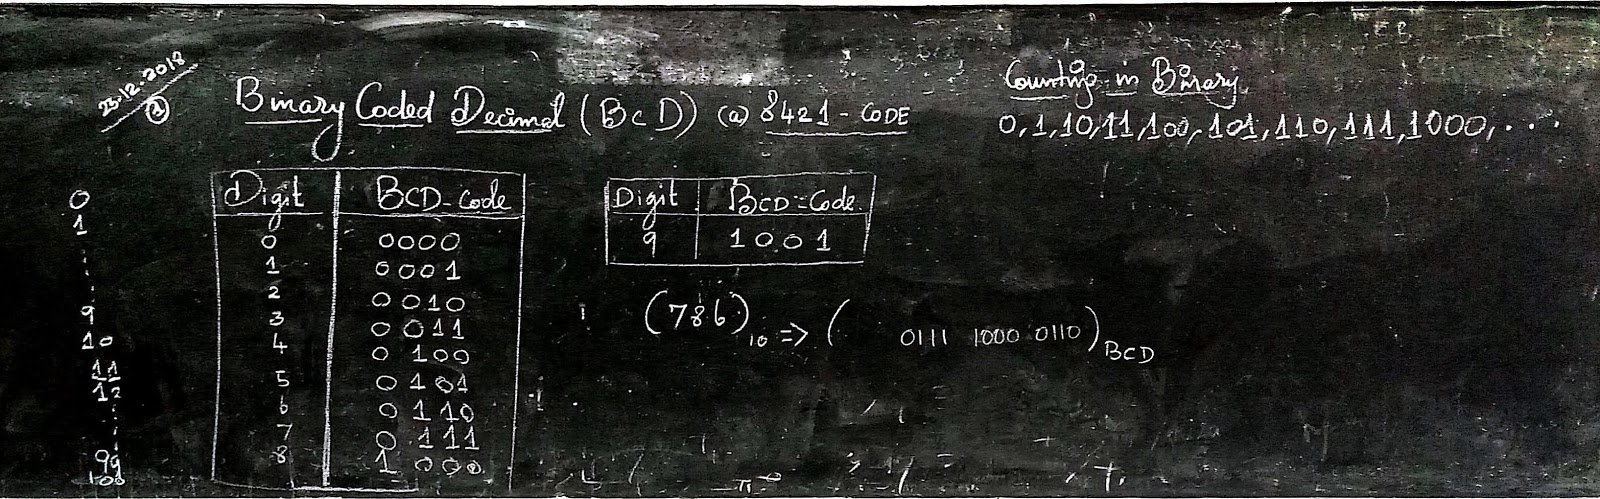 23.12.2018
2
Binary Coded Decimal (BCD) (a) 8421-CODE
Counting in Binary
0,1,10,11,100,101,110,111,1000,...
0
1
9
10
11
12
99
100
Digit BCD-Code
0 0000
1 0001
2 0010
3 0011
4 0100
5 0101
6 0110
7 0111
8 1000
Digit BCD-Code
9 1001
(786)10 => ( 0111 1000 0110)BCD